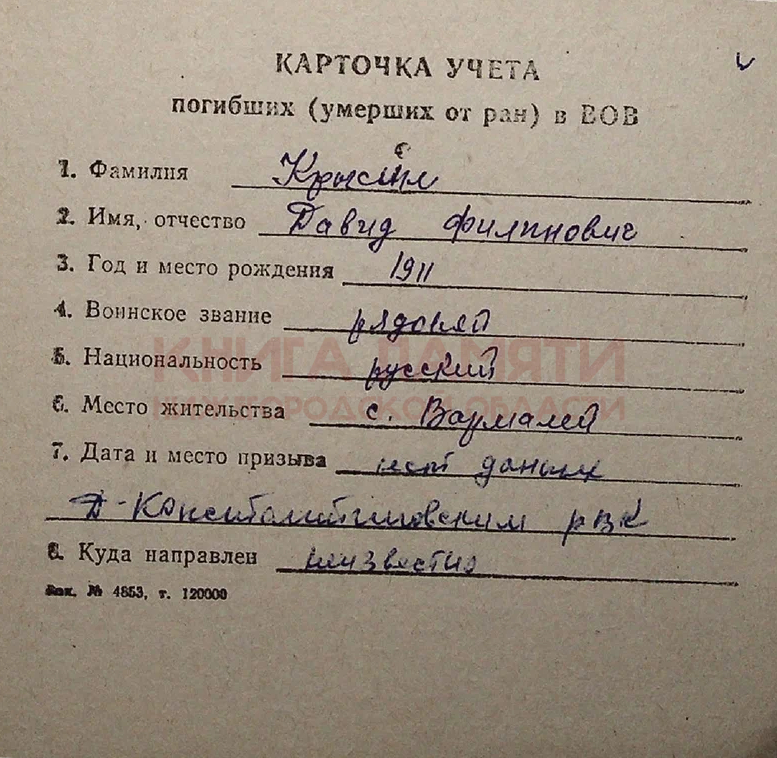 КАРТОЧКА УЧЕТА
погибших (умерших от ран) в ВОВ
1. Фамилия
2. Имя, отчество Давид Филиппович
3. Год и место рождения 1911
4. Воинское звание рядовой
5. Национальность русский
КНИГА ПАМЯТИ
НИЖЕГОРОДСКОЙ ОБЛАСТИ
6. Место жительства с. Вармалей
7. Дата и место призыва нет данных
Д-Константиновским РВК
8. Куда направлен неизвестно
Зак. № 4853, т. 120000